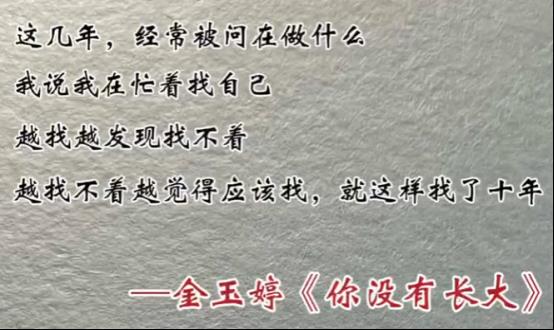 这几年，经常被问在做什么
我说我在忙着找自己
越找越发现找不着
越找不着越觉得应该找，就这样找了十年
—金玉婷《你没有长大》